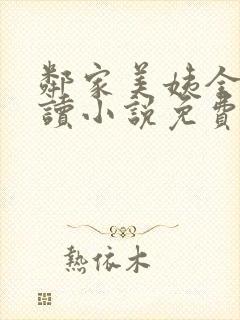 鄰家美姨全
讀小說免費
熱依木